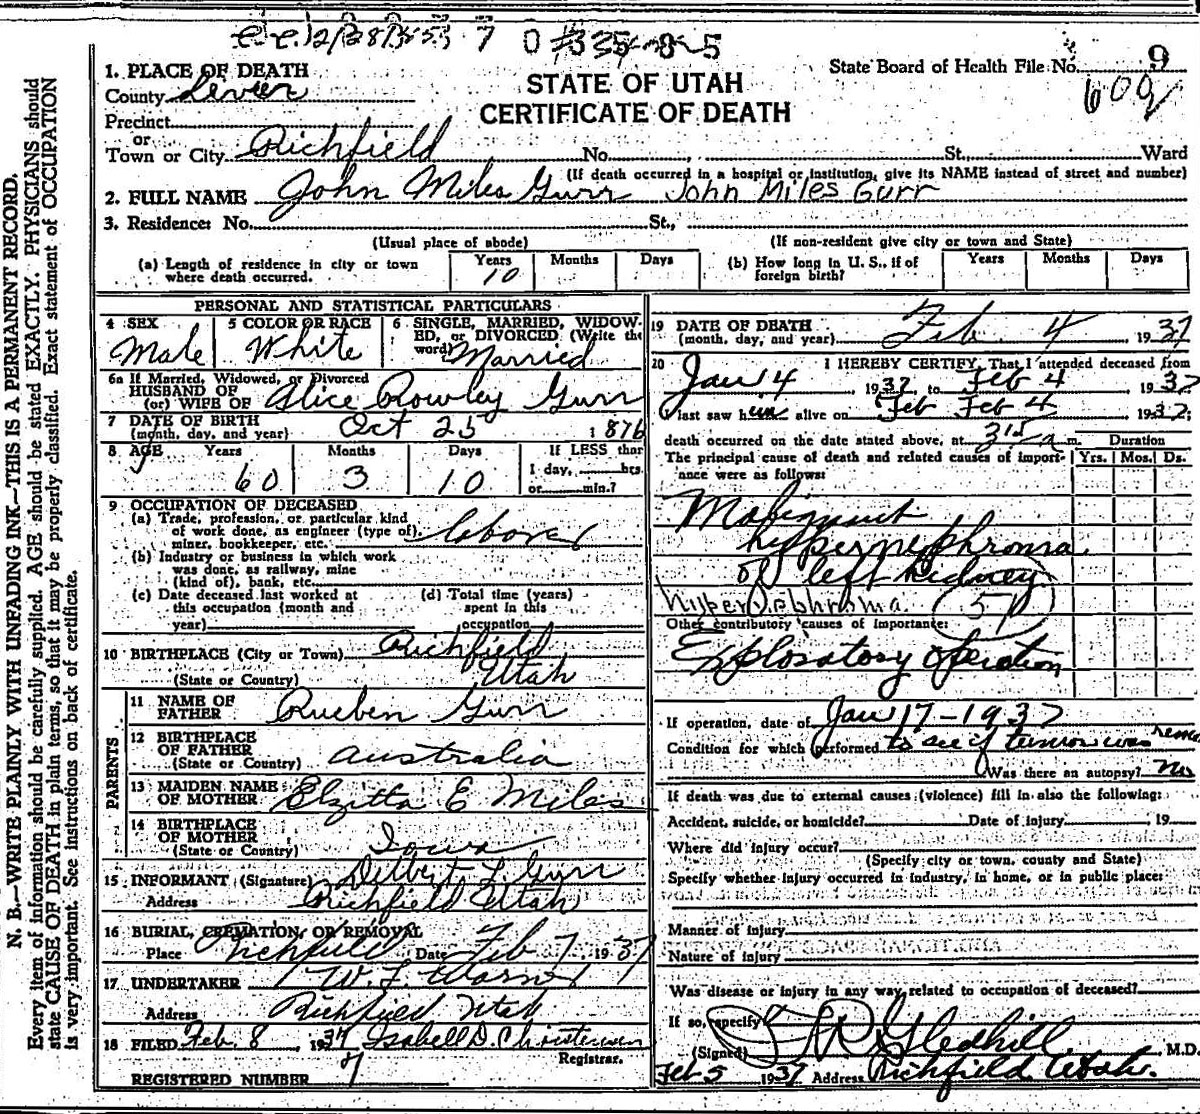 State Board of Health File No. 9
609
STATE OF UTAH
CERTIFICATE OF DEATH
1. PLACE OF DEATH
County Sevier
Precinct
or
Town or City Richfield No. , St. Ward
(If death occurred in a hospital or institution, give its NAME instead of street and number)
2. FULL NAME John Miles Gurr John Miles Gurr
3. Residence: No. St.,
(Usual place of abode) (If non-resident give city or town and State)
(a) Length of residence in city or town where death occurred. Years 10 Months Days
(b) How long in U. S., if of foreign birth? Years Months Days
PERSONAL AND STATISTICAL PARTICULARS
4 SEX Male
5 COLOR OR RACE White
6 SINGLE, MARRIED, WIDOWED, or DIVORCED (Write the word) Married
6a If Married, Widowed, or Divorced
HUSBAND OF
(or) WIFE OF Alice Rowley Gurr
7 DATE OF BIRTH
(month, day, and year) Oct 25 1876
8 AGE Years 60 Months 3 Days 10 If LESS than
1 day, hrs.
or min.?
9 OCCUPATION OF DECEASED
(a) Trade, profession, or particular kind
of work done, as engineer (type of),
miner, bookkeeper, etc. labores
(b) Industry or business in which work
was done, as railway, mine
(kind of), bank, etc.
(c) Date deceased last worked at
this occupation (month and
year)
(d) Total time (years)
spent in this
occupation
10 BIRTHPLACE (City or Town) Richfield
(State or Country) Utah
PARENTS
11 NAME OF
FATHER Rueben Gurr
12 BIRTHPLACE
OF FATHER
(State or Country) Australia
13 MAIDEN NAME
OF MOTHER Elzitta E Miles
14 BIRTHPLACE
OF MOTHER
(State or Country) Iowa
15 INFORMANT (Signature) Delbert L. Gurr
Address Richfield Utah
16 BURIAL, CREMATION, OR REMOVAL
Place Richfield Date Feb 7 1937
17 UNDERTAKER W. L.
Address Richfield Utah
18 FILED Feb. 8, 1937 Isabell D. Christensen
Registrar.
REGISTERED NUMBER 9
19 DATE OF DEATH
(month, day, and year) Feb 4 1937
20 I HEREBY CERTIFY, That I attended deceased from
Jan 4 1937 to Feb 4 1937
I last saw him alive on Feb Feb 4 1937
death occurred on the date stated above, at a m. Duration
The principal cause of death and related causes of importance were as follows: Yrs. Mos. Ds.
Malignant
hypernephroma
of left kidney
Other contributory causes of importance:
Exploratory operation
If operation, date of Jan 17 - 1937
Condition for which performed to see if tumor was
Was there an autopsy? No
If death was due to external causes (violence) fill in also the following:
Accident, suicide, or homicide? Date of injury , 19
Where did injury occur?
(Specify city or town, county and State)
Specify whether injury occurred in industry, in home, or in public place:
Manner of injury
Nature of injury
Was disease or injury in any way related to occupation of deceased?
If so, specify
(Signed) Gledhill, M.D.
Feb 5 1937 Address Richfield Utah.
N. B.—WRITE PLAINLY WITH UNFADING INK—THIS IS A PERMANENT RECORD.
Every item of information should be carefully supplied. AGE should be stated EXACTLY. PHYSICIANS should
state CAUSE OF DEATH in plain terms, so that it may be properly classified. Exact statement of OCCUPATION
is very important. See instructions on back of certificate.